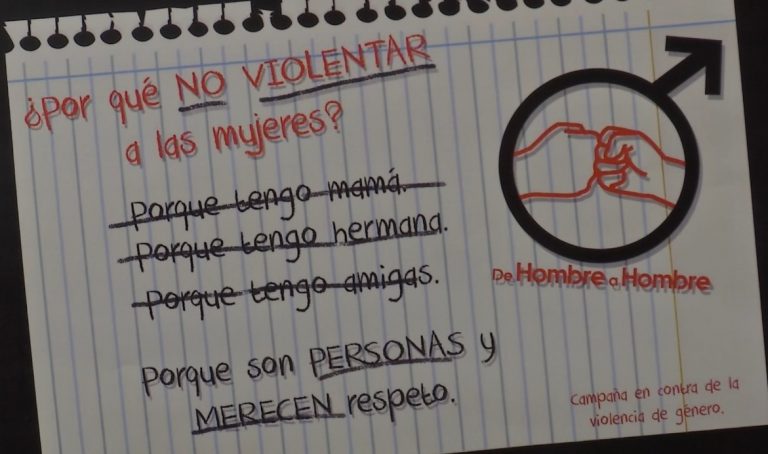 ¿Por qué NO VIOLENTAR
a las mujeres?
Porque tengo mamá.
Porque tengo hermana.
Porque tengo amigas.
Porque son PERSONAS y
MERECEN respeto.
De Hombre a Hombre
Campaña en contra de la
violencia de género.